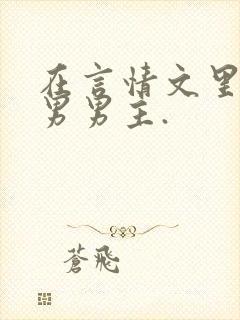 在言情文里
男男主.
蒼飛